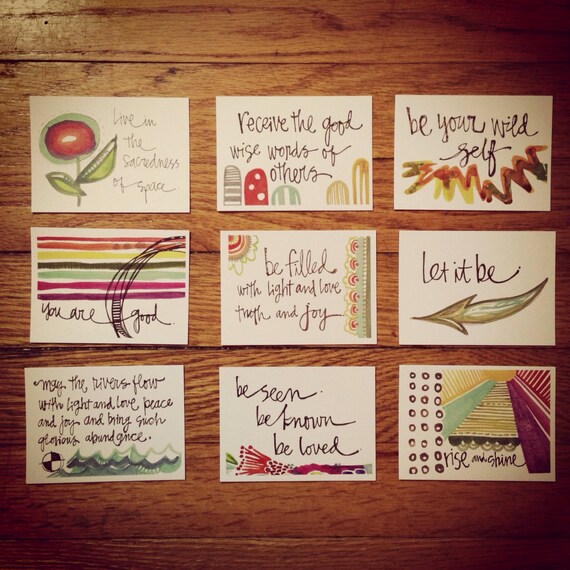 live in
the
sacredness
of space
receive the good
wise words of
others
be your wild
self
you are good.
be filled
with light and love
truth and joy
let it be.
may the rivers flow
with light and love peace
and joy and bring such
glorious abundance.
be seen.
be known
be loved.
rise and shine